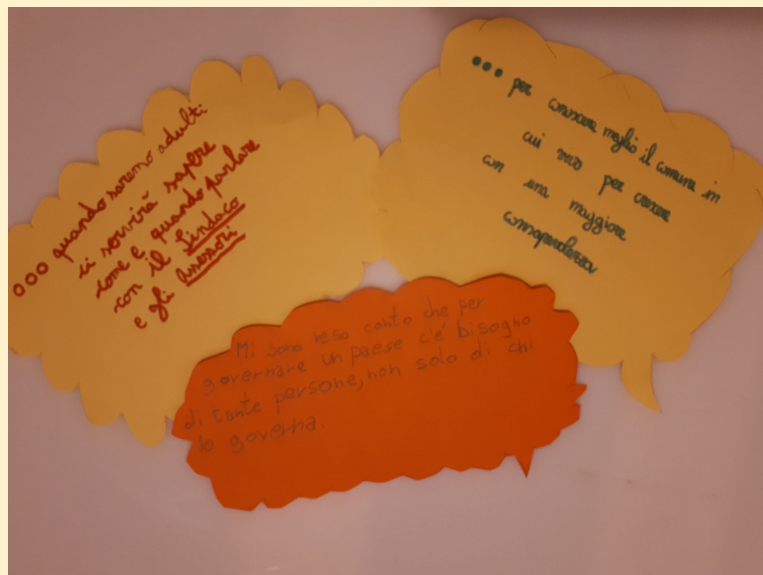 ooo quando saremo adulti
ci servirà sapere
come e quando parlare
con il Sindaco
e gli Assessori
... per conoscere meglio il comune in
cui vivo per crescere
con una maggiore
consapevolezza
Mi sono reso conto che per
governare un paese c'è bisogno
di tante persone, non solo di chi
lo governa.